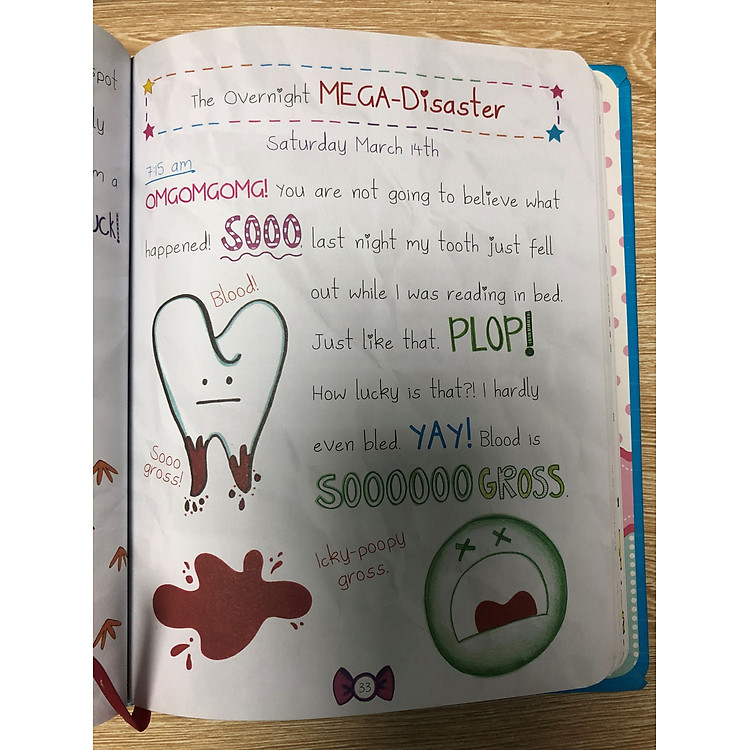 spot
ly
m a
uck!
The Overnight MEGA-Disaster
Saturday March 14th
7:15 am
OMGOMGOMG! You are not going to believe what
happened! SOOO last night my tooth just fell
Blood!
out while I was reading in bed.
Just like that. PLOP!
How lucky is that?! I hardly
even bled. YAY! Blood is
SOOOOOO GROSS.
Sooo
gross!
Icky-poopy
gross.
33